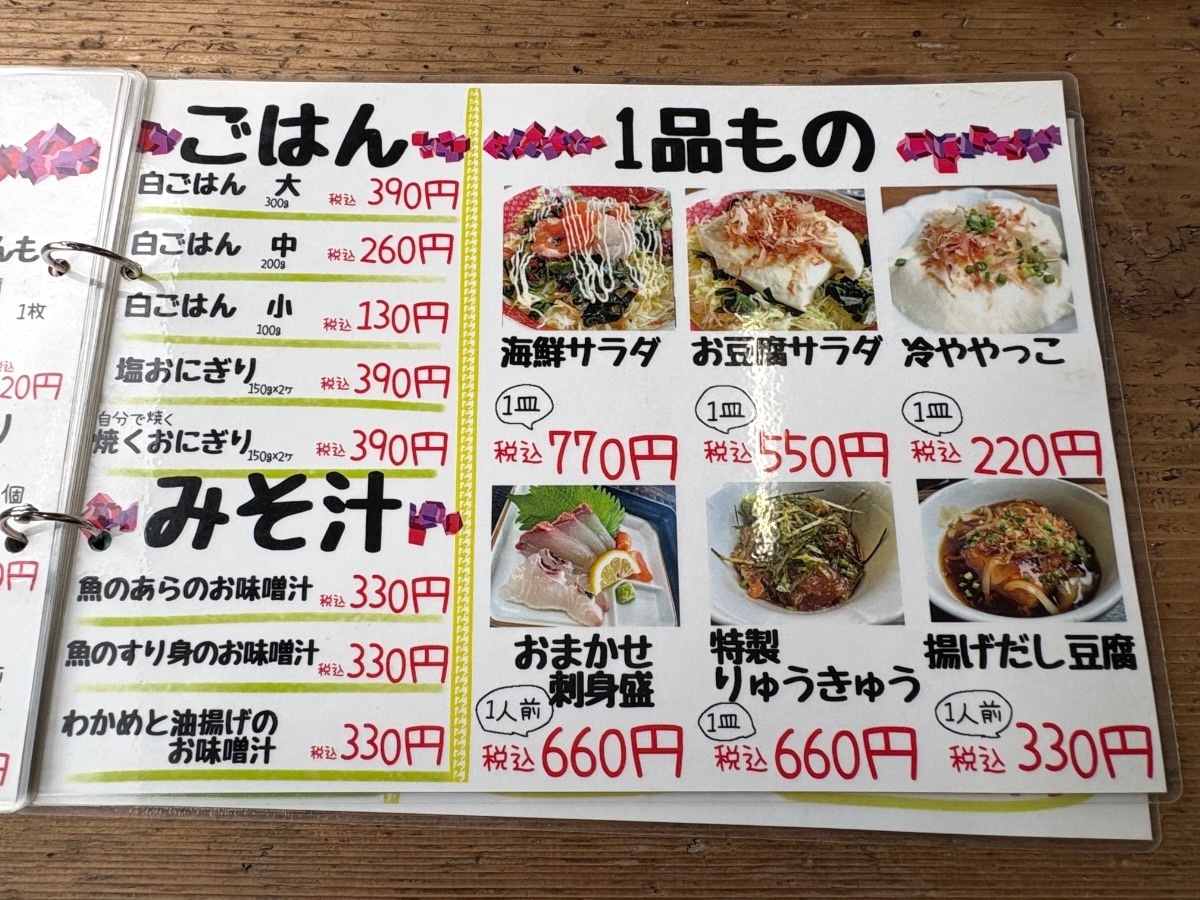 んも
1枚
税込
20円
り
個
0円
ごはん
白ごはん 大
300g
税込 390円
白ごはん 中
200g
税込 260円
白ごはん 小
100g
税込 130円
塩おにぎり
150g×2ヶ
税込 390円
自分で焼く
焼くおにぎり
150g×2ヶ
税込 390円
みそ汁
魚のあらのお味噌汁 税込 330円
魚のすり身のお味噌汁 税込 330円
わかめと油揚げの
お味噌汁 税込 330円
1品もの
海鮮サラダ
1皿
税込 770円
お豆腐サラダ
1皿
税込 550円
冷ややっこ
1皿
税込 220円
おまかせ
刺身盛
1人前
税込 660円
特製
りゅうきゅう
1皿
税込 660円
揚げだし豆腐
1人前
税込 330円